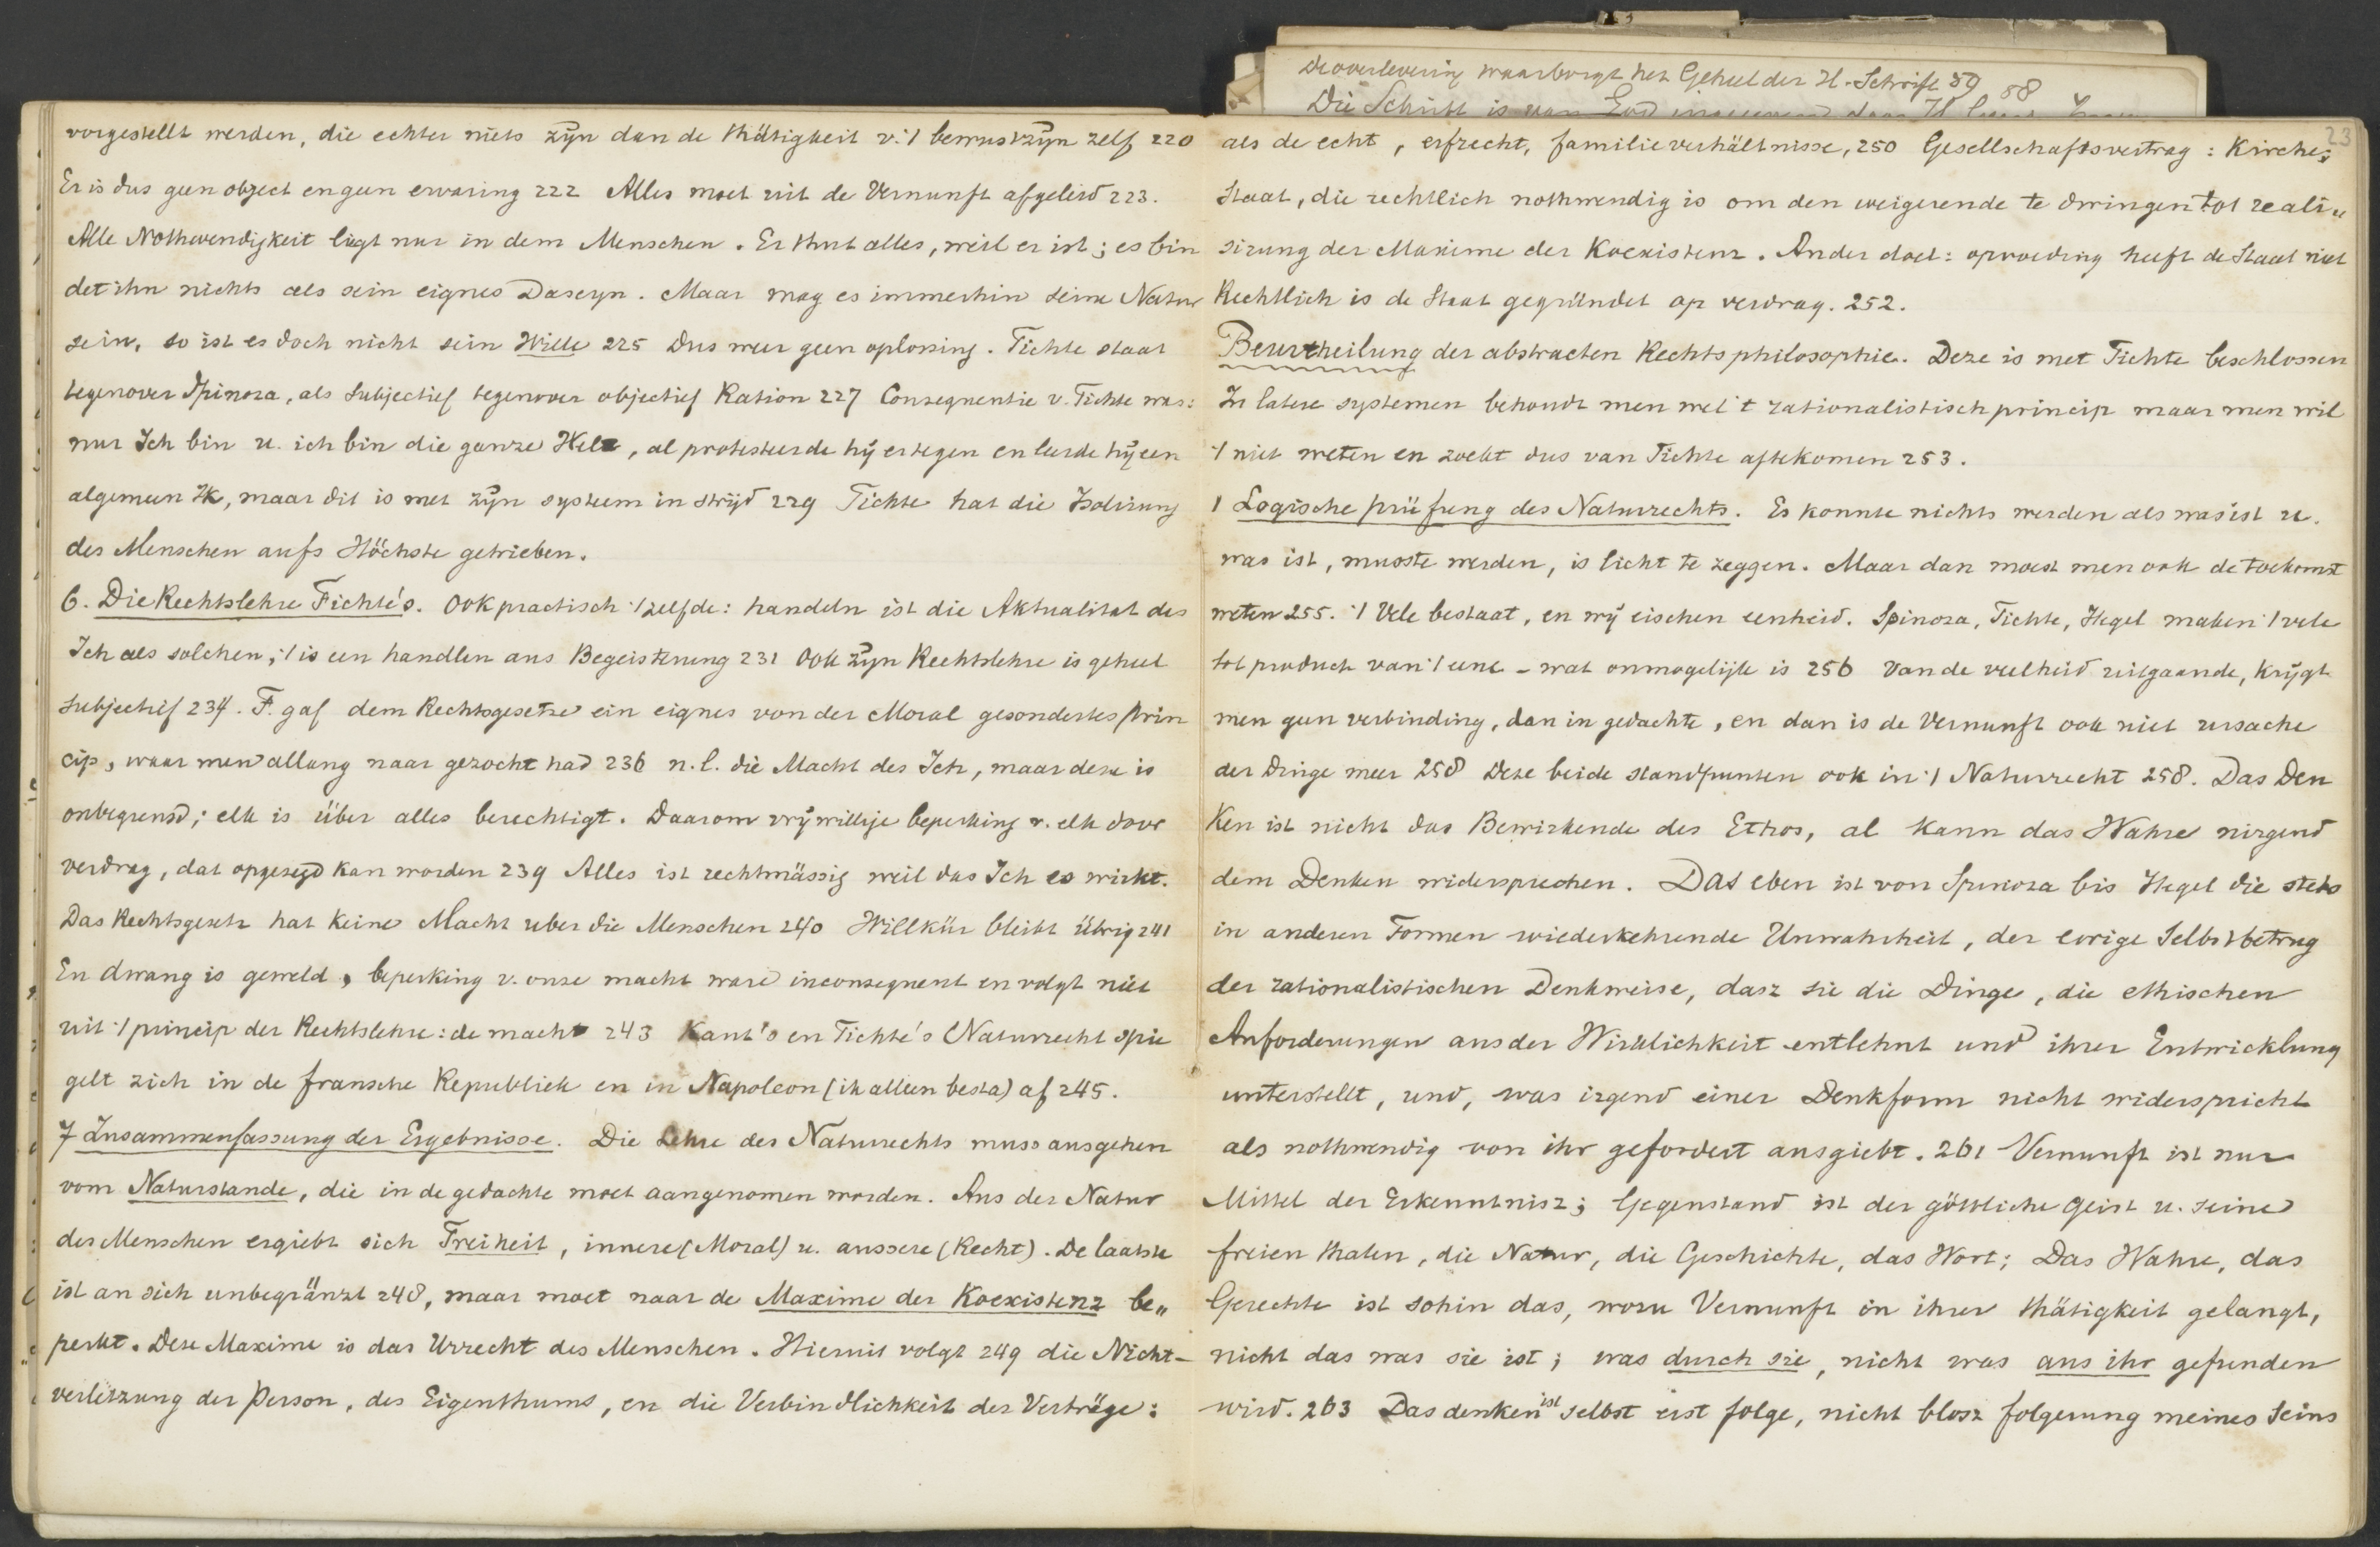 De overlevering waarborgt het Geheel der H. Schrift 59
58
Die Schrift is van God
23
vorgestellt werden, die echter niets zijn dan de thätigkeit v. 't bewustzijn zelf 220
Er is dus geen object en geen ervaring 222 Alles moet uit de Vernunft afgeleid 223.
Alle Nothwendigkeit liegt nur in dem Menschen. Er thut alles, weil er ist; es bin
det ihn nichts als sein eignes Daseyn. Maar mag es immerhin seine Natur
sein, so ist es doch nicht sein Wille 225 Dus weer geen oplossing. Fichte staat
tegenover Spinoza, als Subjectief tegenover objectief Ration 227 Consequentie v. Fichte was:
nur Ich bin u. ich bin die ganze Welt, al protesteerde hij ertegen en leerde hij een
algemeen Ik, maar dit is met zijn systeem in strijd 229 Fichte hat die Isolirung
des Menschen aufs Höchste getrieben.
6. Die Rechtslehre Fichte's. Ook practisch 't zelfde: handeln ist die Aktualitat des
Ich als solchen, 't is een handlen aus Begeisterung 231 Ook zijn Rechtslehre is geheel
subjectief 234. F. gaf dem Rechtsgesetze ein eignes von der Moral gesondertes Prin
cip, waar men allang naar gezocht had 236 n.l. die Macht des Ich, maar deze is
onbegrensd; elk is über alles berechtigt. Daarom vrijwillige beperking v. elk door
verdrag, dat opgezegd kan worden 239 Alles ist rechtmässig weil das Ich es wirkt.
Das Rechtsgesetz hat keine Macht uber die Menschen 240 Willkür bleibt übrig 241
En dwang is geweld, beperking v. onze macht ware inconsequent en volgt niet
uit 't princip der Rechtslehre: de macht 243 Kant's en Fichte's Naturrecht spie
gelt zich in de fransche Republiek en in Napoleon (ik alleen besta) af 245.
7 Zusammenfassung der Ergebnisse. Die Lehre des Naturrechts muss ausgehen
vom Naturstande, die in de gedachte moet aangenomen worden. Aus der Natur
des Menschen ergiebt sich Freiheit, innere (Moral) u. aussere (Recht). De laatste
ist an sich unbegränzt 248, maar moet naar de Maxime der Koexistenz be„
perkt. Deze Maxime is das Urrecht des Menschen. Hieruit volgt 249 die Nicht-
verletzung der Person, des Eigenthums, en die Verbindlichkeit der Verträge:
als de echt, erfrecht, familieverhältnisse, 250 Gesellschaftsvertrag: Kirche;
Staat, die rechtlich nothwendig is om den weigerende te dwingen tot reali„
sirung der Maxime der Koexistenz. Ander doel: opvoeding heeft de Staat niet
Rechtlich is de Staat gegründet op verdrag. 252.
Beurtheilung der abstracten Rechtsphilosophie. Deze is met Fichte beschlossen
In latere systemen behoudt men wel 't rationalistisch princip maar men wil
't niet weten en zoekt dus van Fichte aftekomen 253.
1 Logische prüfung des Naturrechts. Es konnte nichts werden als was ist u.
was ist, musste werden, is licht te zeggen. Maar dan moest men ook de toekomst
weten 255. 't Vele bestaat, en wij eischen eenheid. Spinoza, Fichte, Hegel maken 't vele
tot product van 't eene - wat onmogelijk is 256 Van de veelheid uitgaande, krijgt
men geen verbinding, dan in gedachte, en dan is de Vernunft ook niet ursache
der Dinge meer 258 Deze beide standpunten ook in 't Naturrecht 258. Das Den
ken ist nicht das Bewirkende des Ethos, al kann das Wahre nirgend
dem Denken widersprechen. Das eben ist von Spinoza bis Hegel die stets
in anderen Formen wiederkehrende Unwahrheit, der ewige Selbstbetrug
der rationalistischen Denkweise, dasz sie die Dinge, die ethischen
Anforderungen aus der Wirklichkeit entlehnt und ihrer Entwicklung
unterstellt, und, was irgend einer Denkform nicht widerspricht
als nothwendig von ihr gefordert ausgiebt. 261 Vernunft ist nur
Mittel der Erkenntnisz; Gegenstand ist der göttliche Geist u. seine
freien thaten, die Natur, die Geschichte, das Wort; Das Wahre, das
Gerechte ist sohin das, wozu Vernunft in ihrer thätigkeit gelangt,
nicht das was sie ist; was durch sie, nicht was aus ihr gefunden
wird. 263 Das denken ist selbst erst folge, nicht blosz folgerung meines Seins